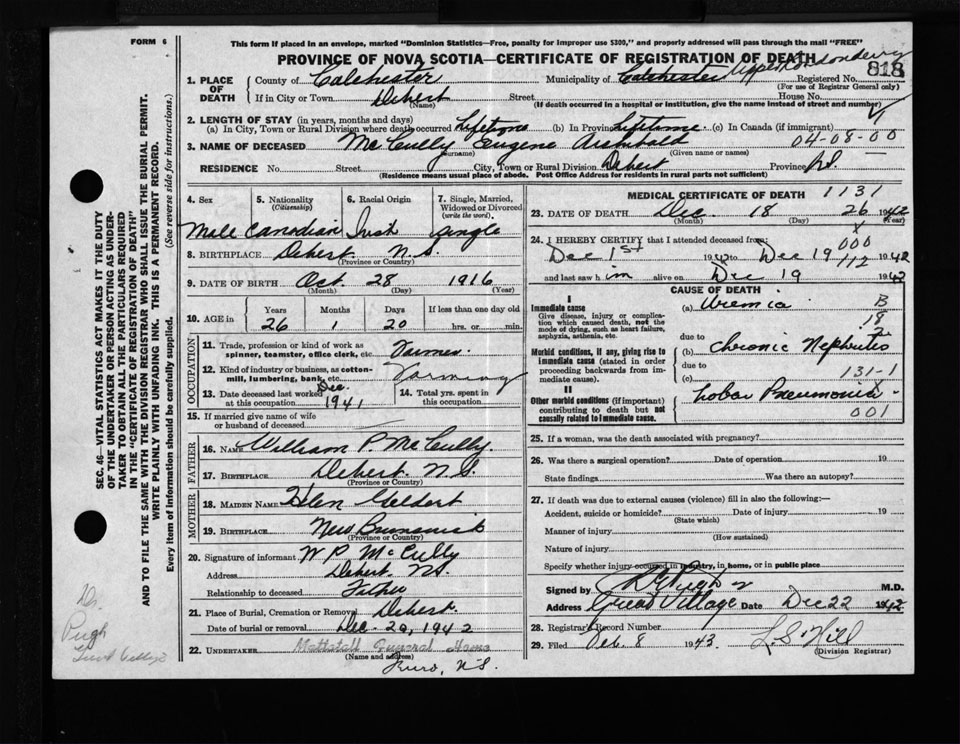 FORM 6
This form if placed in an envelope, marked "Dominion Statistics—Free, penalty for improper use $300," and properly addressed will pass through the mail "FREE"
PROVINCE OF NOVA SCOTIA—CERTIFICATE OF REGISTRATION OF DEATH
1. PLACE OF DEATH
County of Colchester Municipality of Colchester Upper Londonderry Registered No. 818
(For use of Registrar General only)
If in City or Town Debert Street House No.
(Name) (If death occurred in a hospital or institution, give the name instead of street and number)
2. LENGTH OF STAY (in years, months and days)
(a) In City, Town or Rural Division where death occurred Lifetime (b) In Province Lifetime (c) In Canada (if immigrant)
04-08-00
3. NAME OF DECEASED McCully Eugene Archibald
(Surname) (Given name or names)
RESIDENCE No. Street City, Town or Rural Division Debert Province N.S.
(Residence means usual place of abode. Post Office Address for residents in rural parts not sufficient)
4. Sex 5. Nationality (Citizenship) 6. Racial Origin 7. Single, Married, Widowed or Divorced (write the word)
Male Canadian Irish Single
8. BIRTHPLACE Debert N.S.
(Province or Country)
9. DATE OF BIRTH Oct. 28 1916
(Month) (Day) (Year)
10. AGE in Years Months Days If less than one day old
26 1 20 hrs. or min.
OCCUPATION
11. Trade, profession or kind of work as spinner, teamster, office clerk, etc. Farmer
12. Kind of industry or business, as cotton-mill, lumbering, bank, etc. Farming
13. Date deceased last worked at this occupation Dec. 1941
14. Total yrs. spent in this occupation
15. If married give name of wife or husband of deceased
FATHER
16. NAME William P. McCully
17. BIRTHPLACE Debert N.S.
(Province or Country)
MOTHER
18. MAIDEN NAME Helen Geldert
19. BIRTHPLACE New Brunswick
(Province or Country)
20. Signature of informant W P McCully
Address Debert NS
Relationship to deceased Father
21. Place of Burial, Cremation or Removal Debert
Date of burial or removal Dec. 20, 1942
22. UNDERTAKER Mattatall Funeral Home
(Name and address)
Truro, N.S.
MEDICAL CERTIFICATE OF DEATH 1131
23. DATE OF DEATH Dec. 18 26 1942
(Month) (Day) (Year)
24. I HEREBY CERTIFY that I attended deceased from:
x
000
Dec 1st 1942 to Dec 19 112 1942
and last saw him alive on Dec 19 1942
CAUSE OF DEATH
I
Immediate cause
Give disease, injury or complication which caused death, not the mode of dying, such as heart failure, asphyxia, asthenia, etc.
(a) Uremia B
18
2
due to
(b) Chronic Nephritis
Morbid conditions, if any, giving rise to immediate cause (stated in order proceeding backwards from immediate cause).
due to
(c) 131-1
II
Other morbid conditions (if important) contributing to death but not causally related to immediate cause.
Lobar Pneumonia
001
25. If a woman, was the death associated with pregnancy?
26. Was there a surgical operation? Date of operation 19
State findings Was there an autopsy?
27. If death was due to external causes (violence) fill in also the following:—
Accident, suicide or homicide? Date of injury 19
(State which)
Manner of injury
(How sustained)
Nature of injury
Specify whether injury occurred in industry, in home, or in public place
Signed by M.D.
Address Great Village Date Dec 22 1942
28. Registrar's Record Number 1
29. Filed Feb. 8 1943 L.S. Hill
(Division Registrar)
SEC. 46—VITAL STATISTICS ACT MAKES IT THE DUTY OF THE UNDERTAKER OR PERSON ACTING AS UNDERTAKER TO OBTAIN ALL THE PARTICULARS REQUIRED IN THE "CERTIFICATE OF REGISTRATION OF DEATH" AND TO FILE THE SAME WITH THE DIVISION REGISTRAR WHO SHALL ISSUE THE BURIAL PERMIT.
WRITE PLAINLY WITH UNFADING INK. THIS IS A PERMANENT RECORD.
Every item of information should be carefully supplied. (See reverse side for instructions.)
Dr.
Pugh